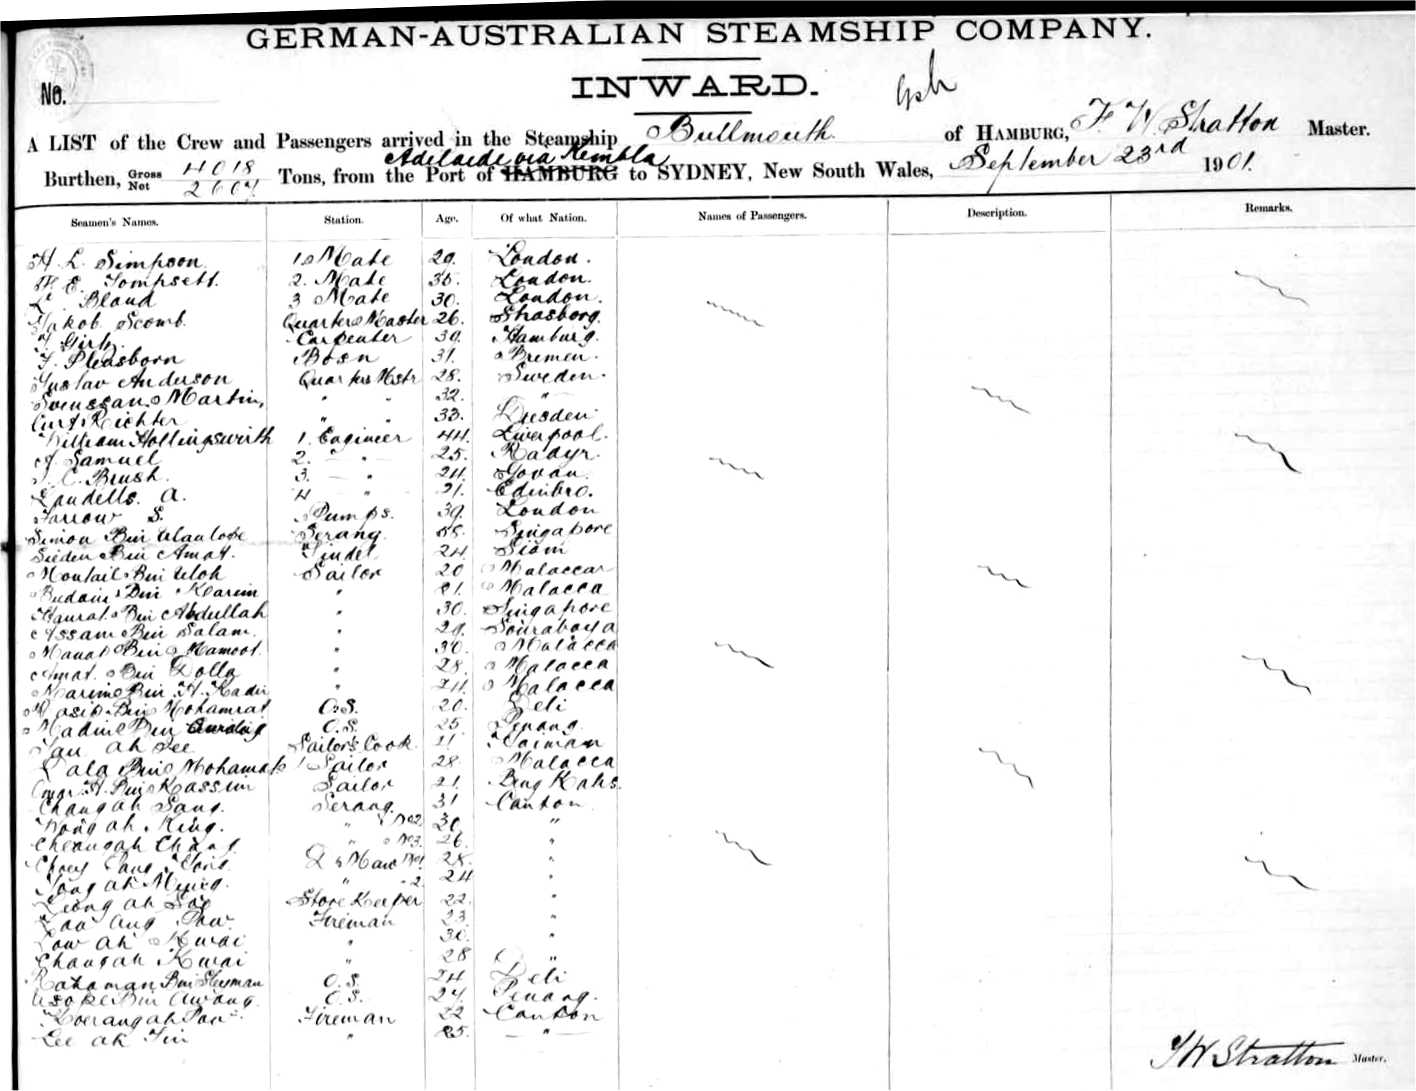 GERMAN-AUSTRALIAN STEAMSHIP COMPANY.
INWARD.
No.
A LIST of the Crew and Passengers arrived in the Steamship Bullmouth of HAMBURG, F. W. Stratton Master.
Adelaide via Kembla
Burthen, Gross 4018 Net 2607 Tons, from the Port of HAMBURG to SYDNEY, New South Wales, September 23rd 1901.
Seamen's Names. Station. Age. Of what Nation. Names of Passengers. Description. Remarks.
H. L. Simpson 1s Mate 29. London.
E. Tompsett. 2. Mate 36. London.
L. Bland 3 Mate 30. London.
Jakob Scomb. Quarters Master 26. Strasborg.
Carpenter 39. Hamburg.
F. Pleasborn Bosn 31. Bremen.
Gustav Anderson Quarters Mstr 28. Sweden.
Svenssan Martin, " " 32. "
Curt Richter " " 33. Dresden
William Hollingswirth 1. Engineer 44. Liverpool.
J. Samuel 2. " 25. Radyr.
C. Brush. 3. " 24. Govan.
Landells. A. 4 " 21. Edinbro.
Farrow S. Pumps. 39. London
Simon Bin Serang. Singapore
Sieden Bin Amat. Tindel 24. Siam
Bin Sailor 20 Malaccar
Bin Karim " Malacca
Bin Abdullah " 30. Singapore
Assam Bin Salam. " 29. Sourabaya
Bin Mamoot. " 30. Malacca
Amat. Bin Dolla " 28. Malacca
Bin H. Kadir " 24. Malacca
Bin Mohamrat O.S. 20. Deli
Madine Bin O.S. 25. Penang
Tan ah See Sailor's Cook 21
Dala Bin Mohamat 1 Sailor 28. Malacca
Bin Kassim Sailor 21.
Chang ah Sang. Serang. 31 Canton
Wong ah King. " No2 30 "
Cheangah Chang " No3. 26. "
28. "
Tong ah " 2. 24 "
Leong ah Store Keeper 22. "
Fireman 23. "
Low ah Kwai " 30. "
Changah Kwai " 28 "
Rahaman Bin O.S. 24 Deli
Bin Awang. O.S. 27. Penang.
Fireman 22 Canton
Lee ah Tin " 25. "
F W Stratton Master.